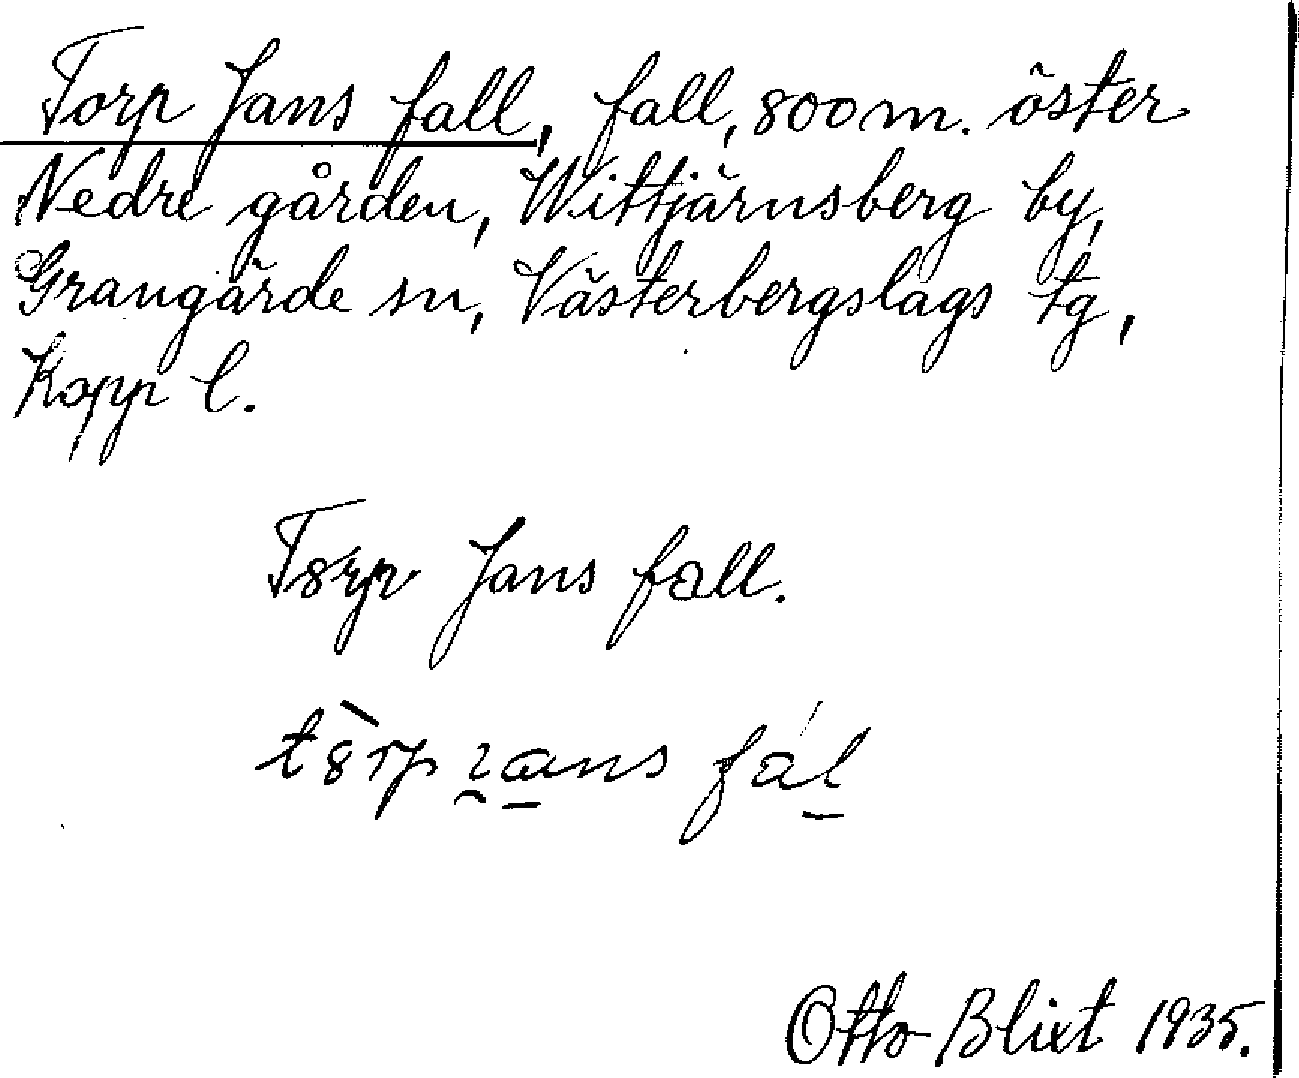 Torp Jans fall, fall, 800 m. öster
Nedre gården, Wittjärnsberg by,
Grangärde sn, Västerbergslags tg,
Kopp l.
T8rp Jans fall.
t8̀rp ɿ̰a̱ns fáḻ
Otto Blixt 1935.